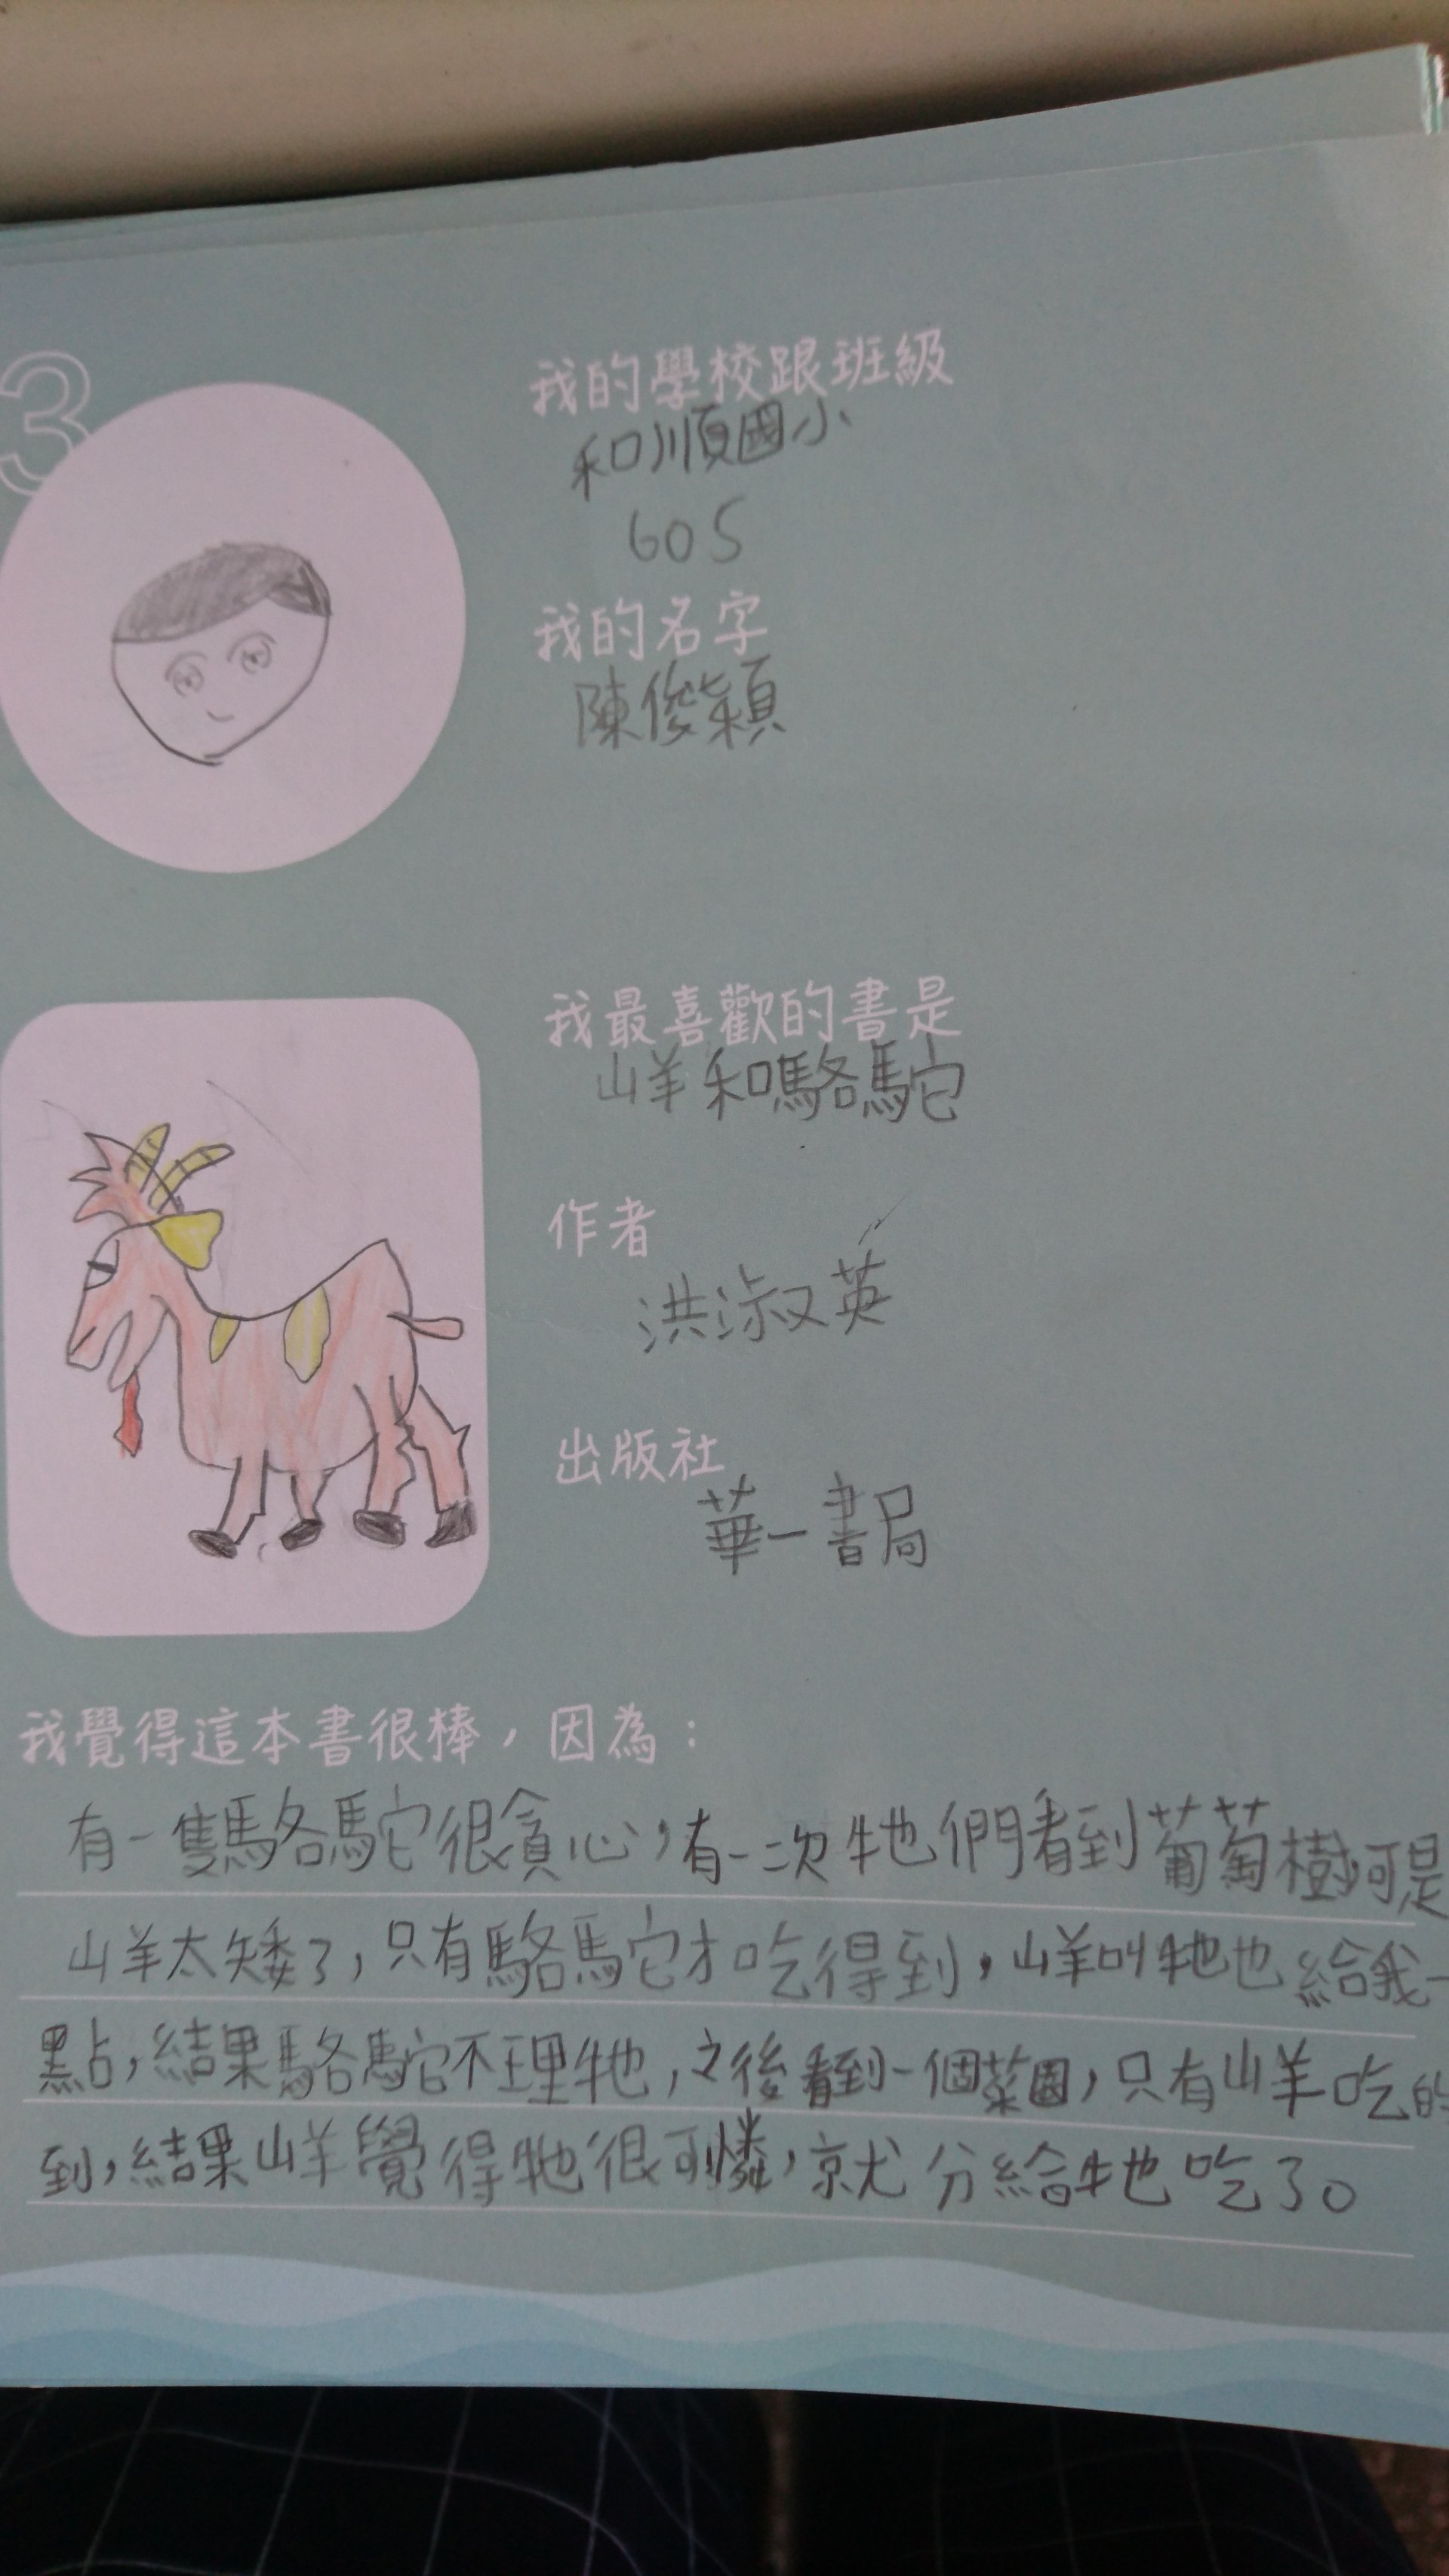 3
我的學校跟班級
和順國小
605
我的名字
陳俊穎
我最喜歡的書是
山羊和駱駝
作者
洪淑英
出版社
華一書局
我覺得這本書很棒，因為：
有一隻駱駝很貪心，有一次牠們看到葡萄樹可是
山羊太矮了，只有駱駝才吃得到，山羊叫牠也給我一
點，結果駱駝不理牠，之後看到一個菜園，只有山羊吃的
到，結果山羊覺得牠很可憐，就分給牠吃了。